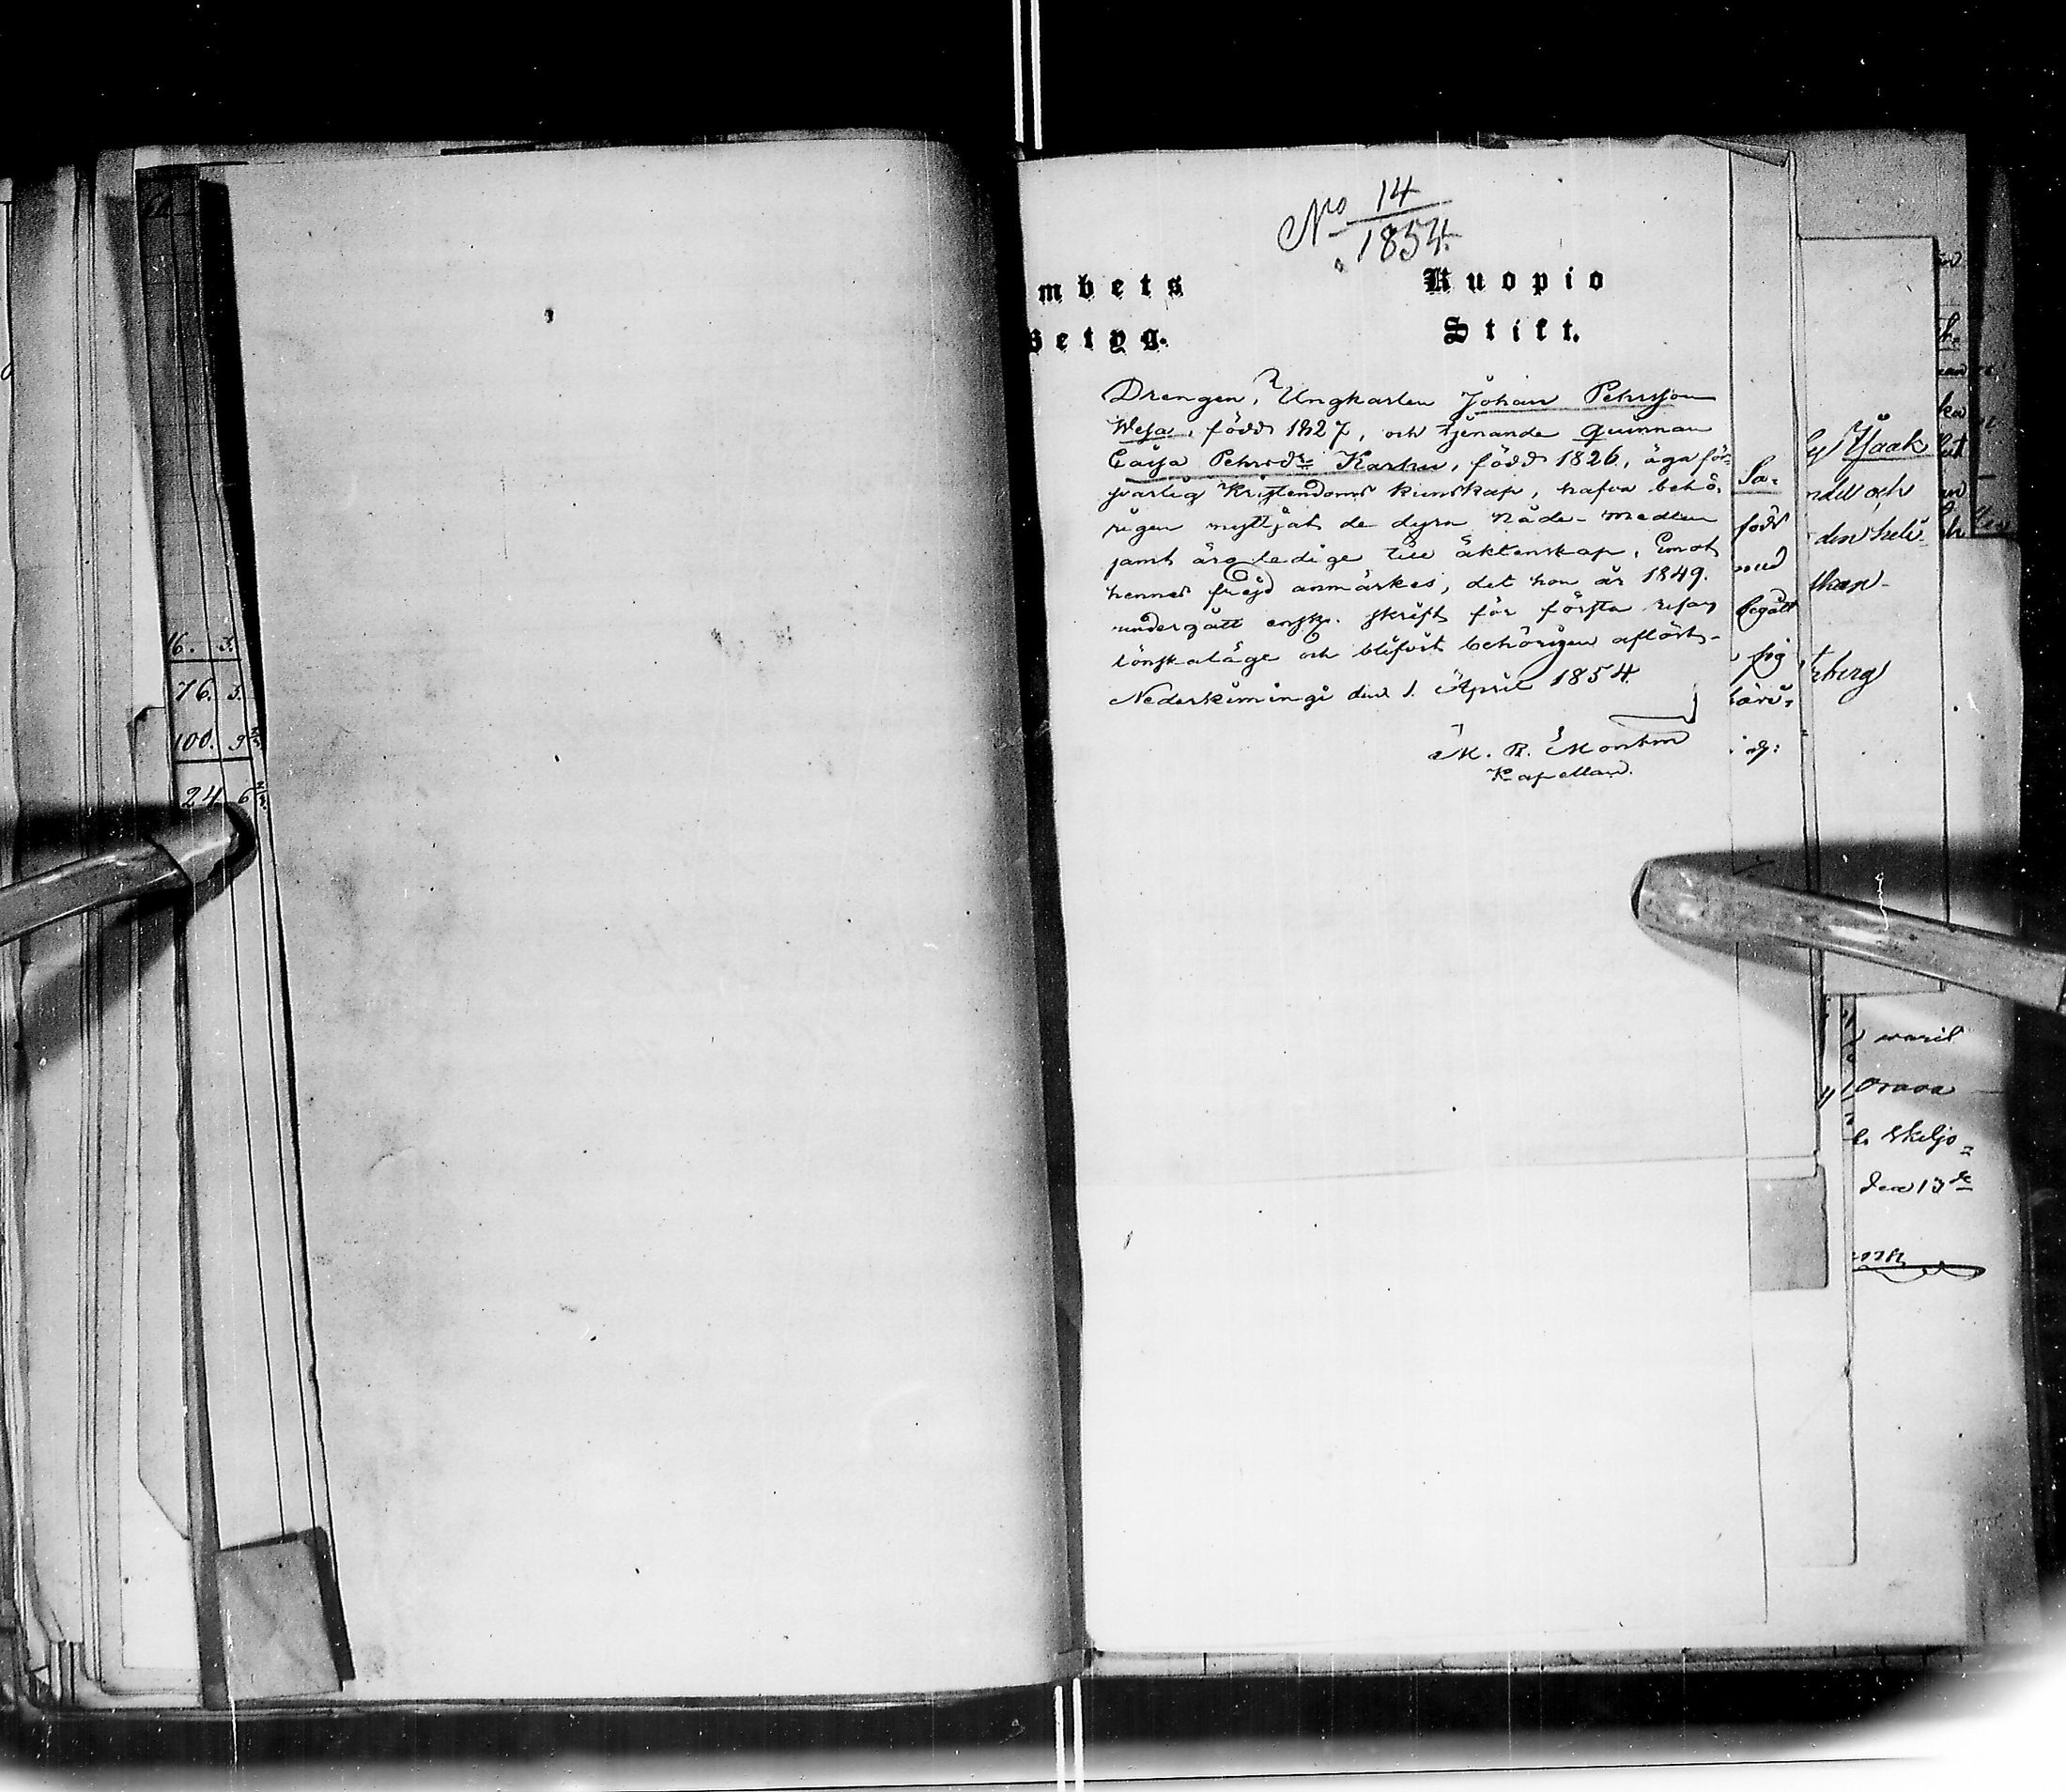 No 14
1854.
mbets
Kuopio
Betyg.
Stift.
Drengen, Ungkarlen Johan Pehrsson
Wesa, född 1827, och tjenande qvinnan
Caisa Pehrsdr Karhu, född 1826, äga för-
svarlig Kristendoms kunskap, hafva behö-
rigen nyttjat de dyra Nåde-medlen
samt äro ledige till äktenskap. Emot
hennes fräjd anmärkes, det hon år 1849.
undergått ensk. skrift för första resan
lönskaläge och blifvit behörigen aflöst.-
Nederkiminge den 1. April 1854.
M. R. Montin
Kapellan.
16. 3.
76. 3.
100. 9
24. 6 2/3.
född
med
begått
sig
Isaak
och
den heli-
varit
Orava
den 13de